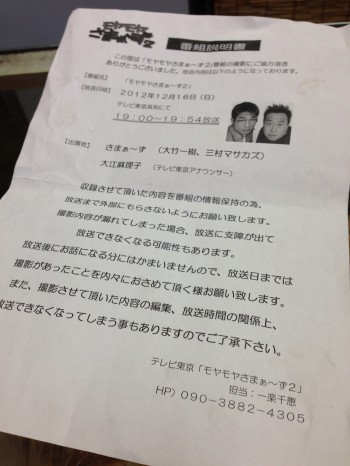 番組説明書
この度は「モヤモヤさまぁ～ず2」番組の撮影にご協力頂き
ありがとうございました。放送内容は以下のようになっております。
【番組名】 「モヤモヤさまぁ～ず2」
【放送日時】 2012年12月16日（日）
テレビ東京系列にて
19：00～19：54放送
【出演者】 さまぁ～ず （大竹一樹、三村マサカズ）
大江麻理子 （テレビ東京アナウンサー）
収録させて頂いた内容を番組の情報保持の為、
放送まで外部にもらさないようにお願い致します。
撮影内容が漏れてしまった場合、放送に支障が出て
放送できなくなる可能性もあります。
放送後にお話になる分にはかまいませんので、放送日までは
撮影があったことを内々におさめて頂く様お願い致します。
また、撮影させて頂いた内容の編集、放送時間の関係上、
放送できなくなってしまう事もありますのでご了承下さい。
テレビ東京「モヤモヤさまぁ～ず2」
担当：一楽千恵
HP）090-3882-4305